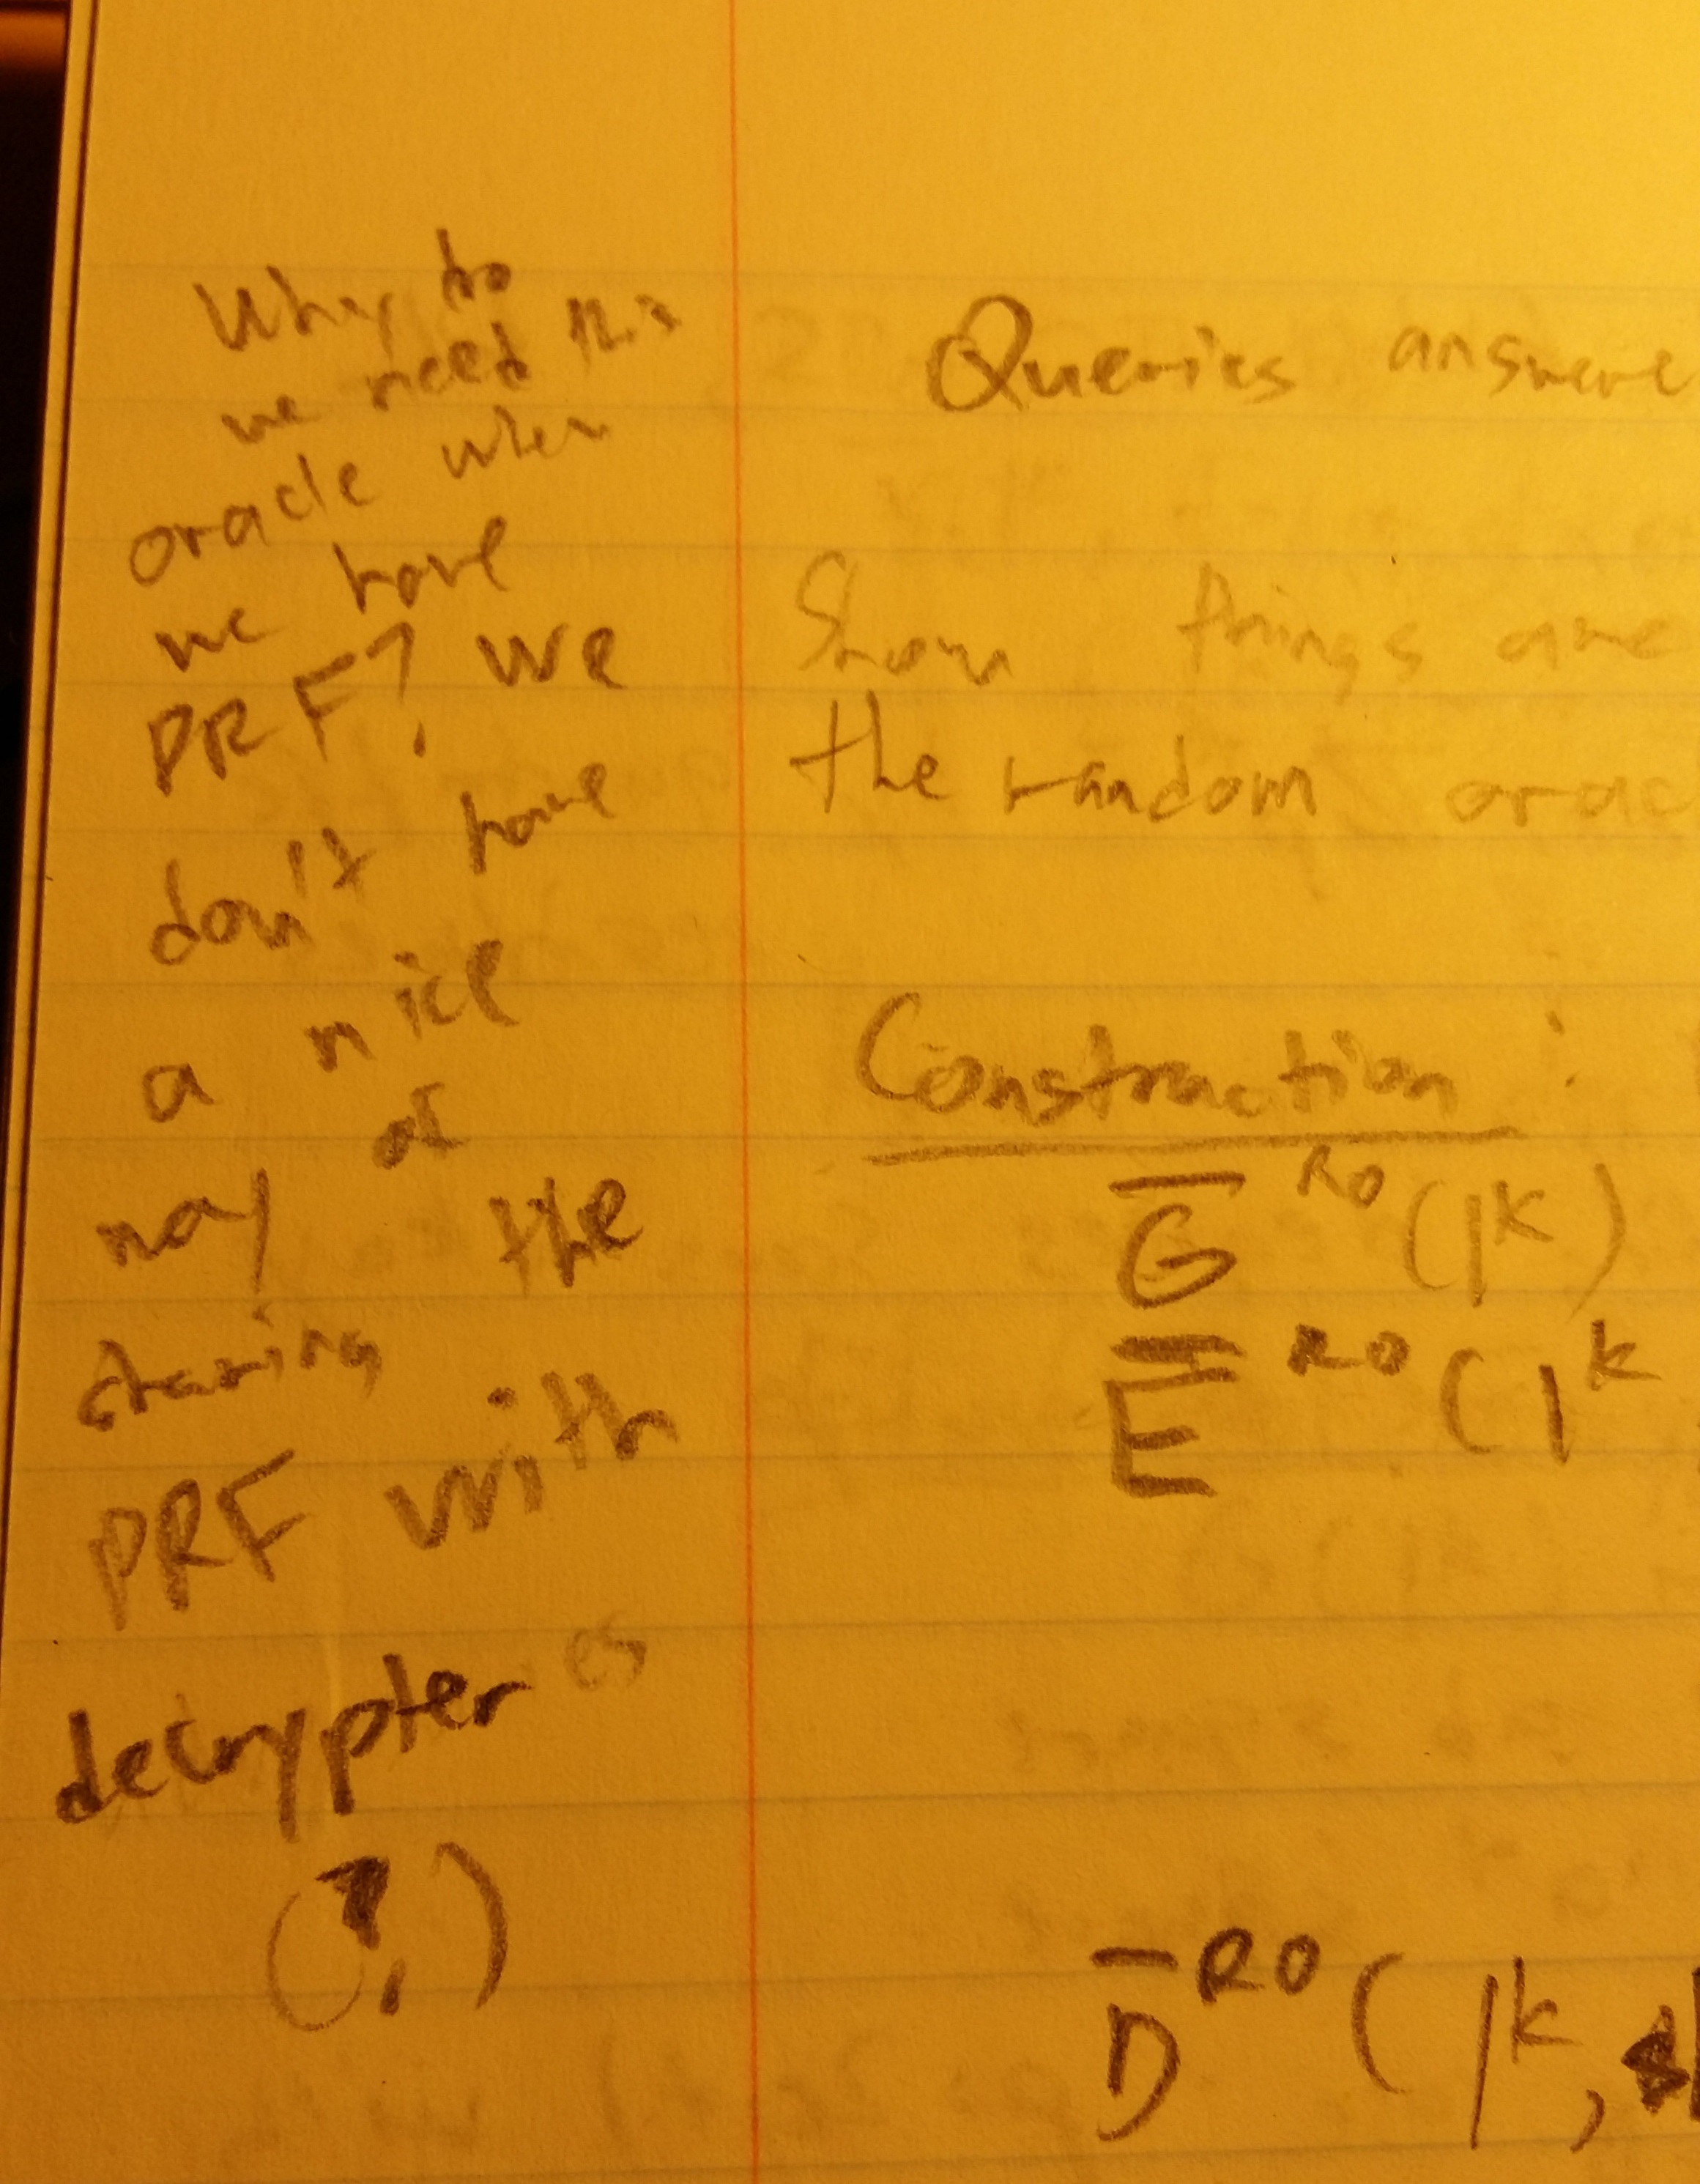 Why do
we need this
oracle when
we have
PRF? we
don't have
a nice
way of
sharing the
PRF with
decrypter
(?)
Queries answere
Show things are
the random orac
Construction :
G̅ ᴿᴼ(1ᵏ)
E̅ ᴿᴼ(1ᵏ
D̅ ᴿᴼ(1ᵏ, s